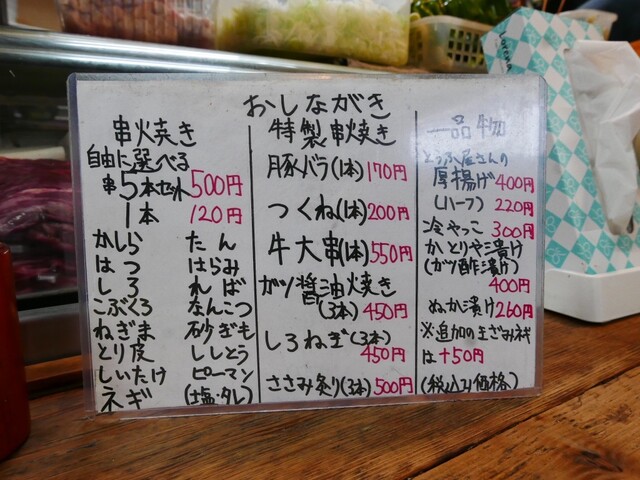 おしながき
串火焼き
自由に選べる
串5本セット 500円
1本 120円
かしら たん
はつ はらみ
しろ ればー
こぶくろ なんこつ
ねぎま 砂ぎも
とり皮 ししとう
しいたけ ピーマン
ネギ (塩・タレ)
特製串火焼き
豚バラ(1本) 170円
つくね(1本) 200円
牛大串(1本) 550円
ガツ醤油火焼き
(3本) 450円
しろねぎ(3本)
450円
ささみ炙り(3本) 500円
一品物
とうふ屋さんの
厚揚げ 400円
(ハーフ) 220円
冷やっこ 300円
かとりや漬け
(ガツ酢漬け)
400円
ぬか漬け 260円
※追加の玉ざみネギ
は+50円
(税込み価格)